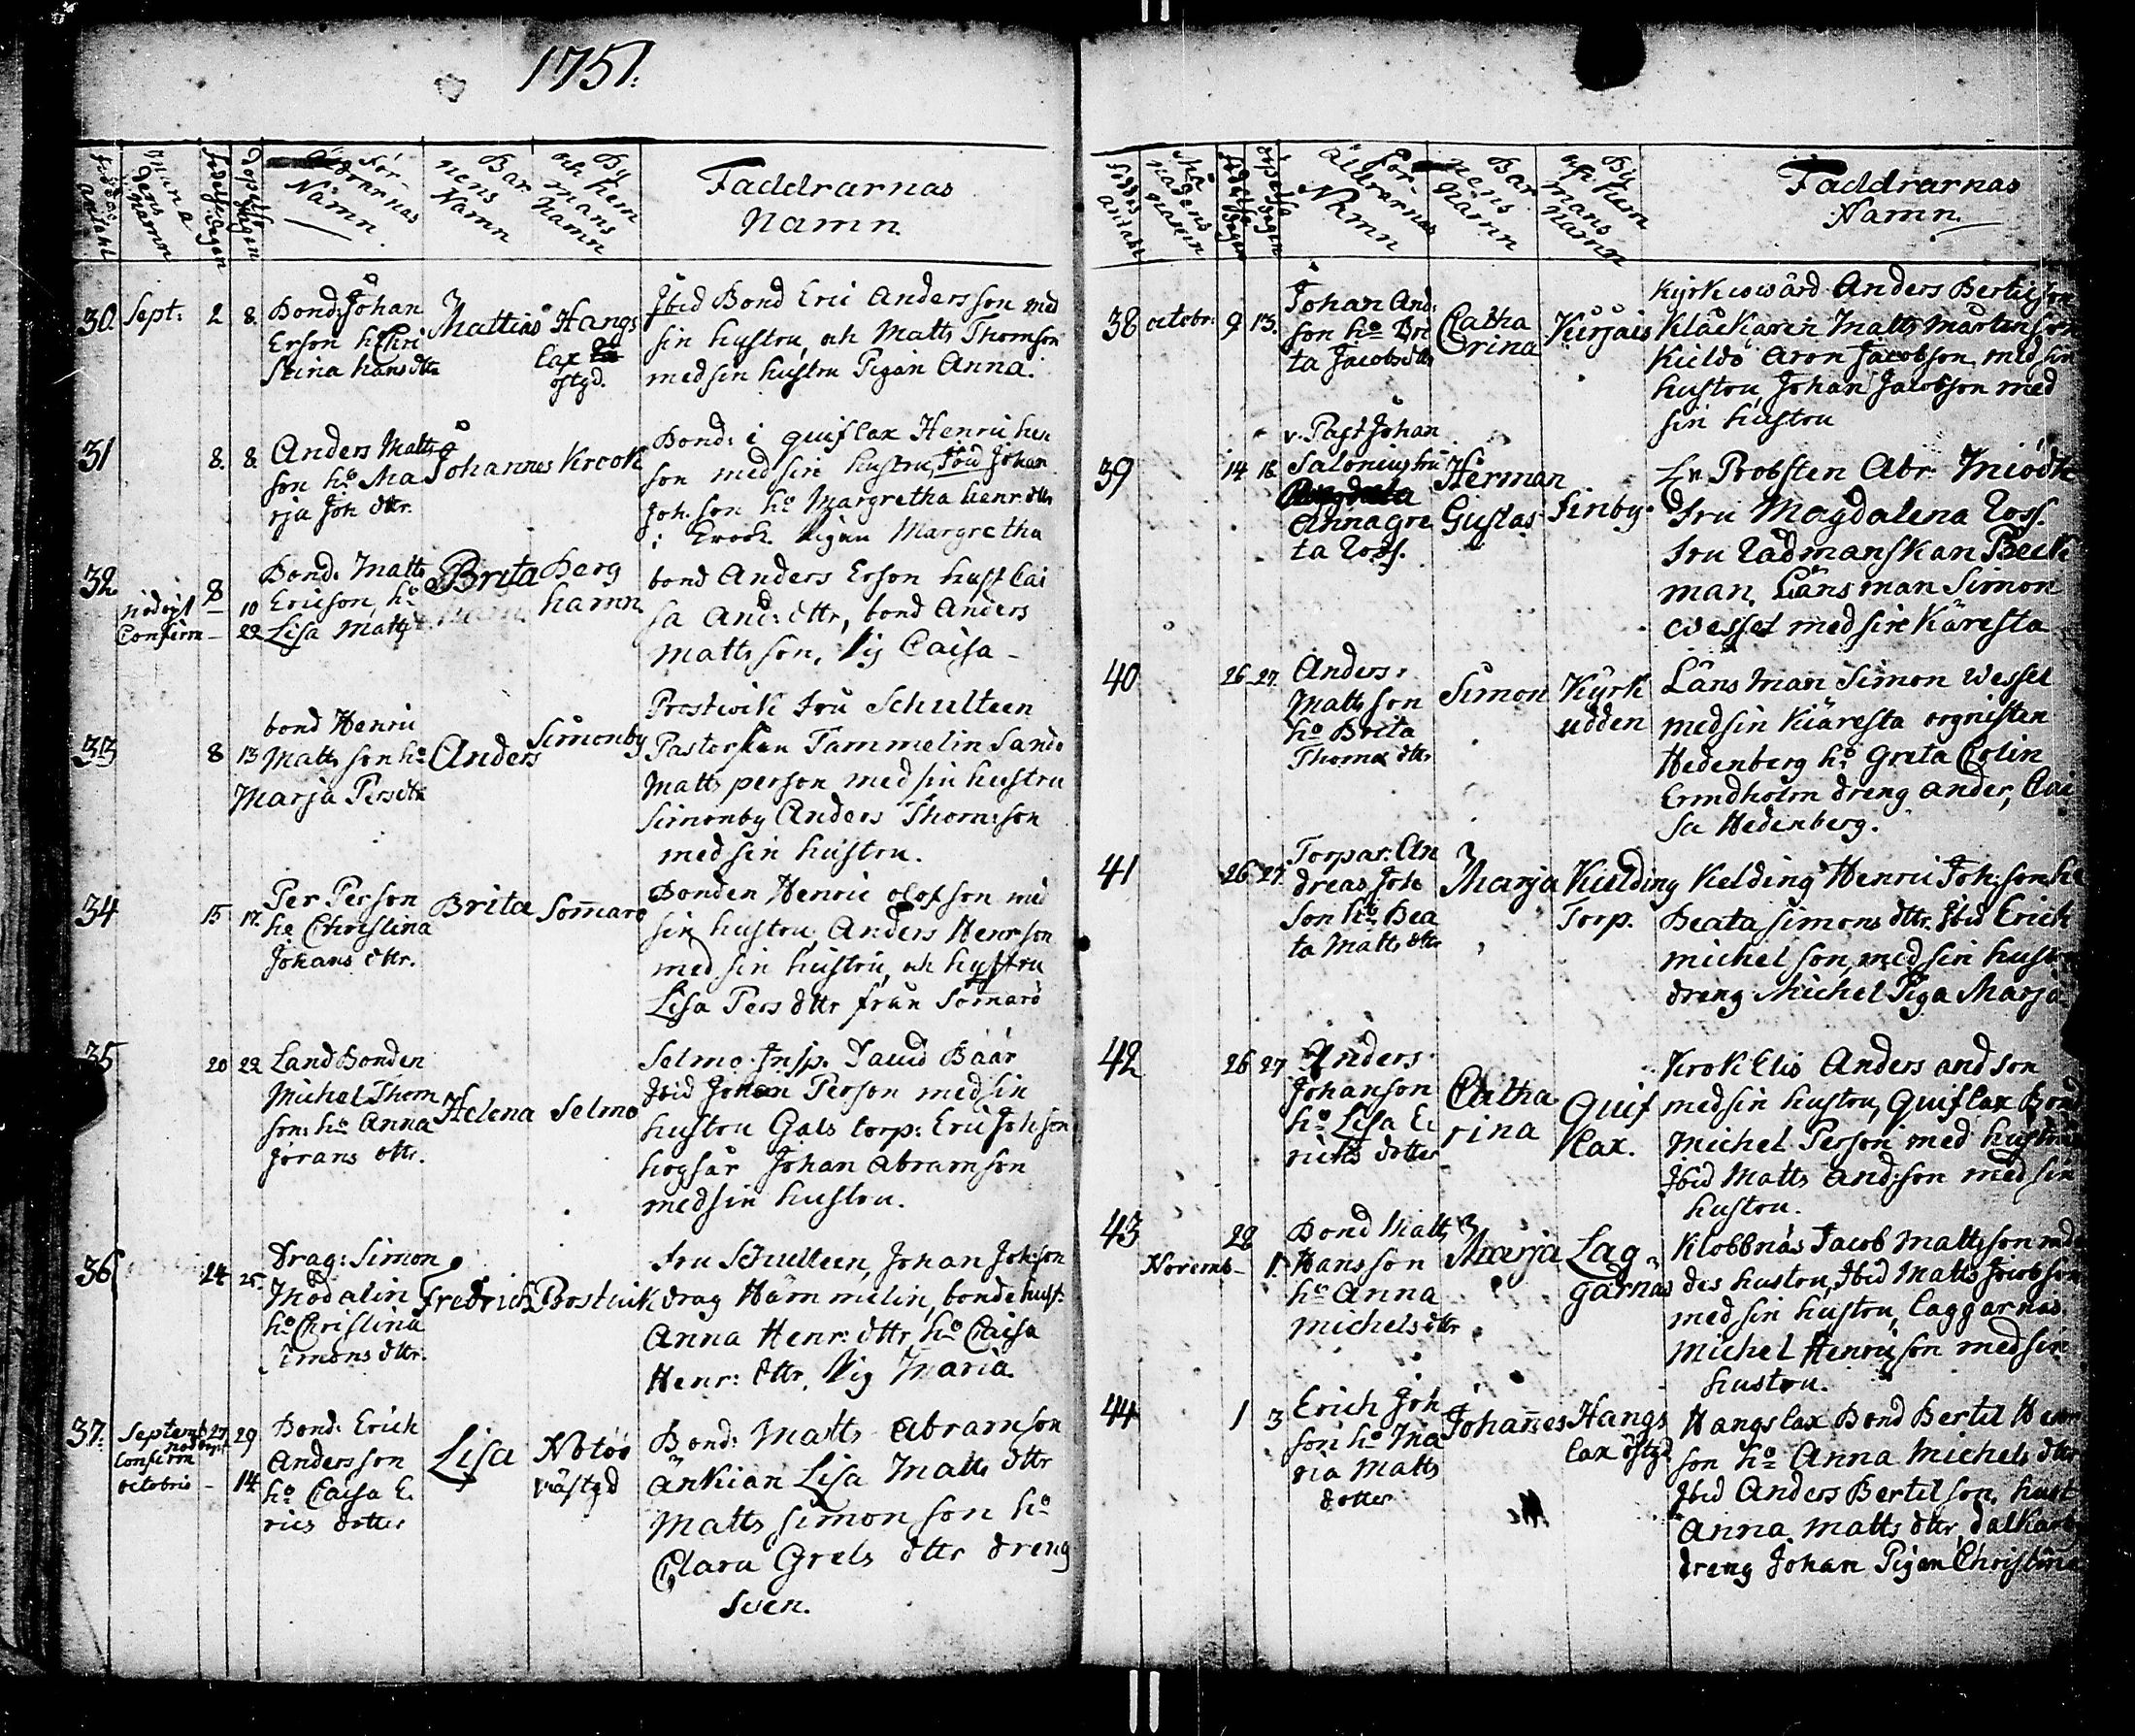 1751.
Föddas antahl
Månadens Namn
Födelse dagen
Döpelse dagen
Föräldrarnas Namn
Barnens Namn
By och Hemmans Namn
Faddrarnas Namn
30 Sept: 2 8. Bond: Johan Erson h Chri stina hans dttr Mattias Hangs lax östgd.
Ibid Bond Eric Andersson med
sin hustru, och Matts Thomson
med sin hustru Pigan Anna.
31 8. 8. Anders Matts son ho Ma rja Joh dttr. Johannes Krook
Bond: i quiflax Henric hen
son med sin hustru, Ibid Johan
Joh. son ho Margretha henr. dttr
i Krook. Pigan Margretha
32 nödöpt 8 10 Confirm - 22 Bond: Matts Ericson, ho Lisa Matts Brita Berg hamn
bond Anders Erson hust Cai
sa And: dttr, bond Anders
Mattsson, Pig Caisa -
33 8 13 bond Henric Matts son ho Marja Pers dttr Anders Simonby
Prostwik Fru Schulteen
Pastorskan Tammelin Sando
Matts person med sin hustru
Simonby Anders Thomsson
med sin hustru.
34 15 17. Per Person ho Christina Johans dttr. Brita Somarö
Bonden Henric olofson med
sin hustru, Anders Henrson
med sin hustru, och hustru
Lisa Pers dttr från Somarö
35 20 22 Land Bonden Michel Thom son: ho Anna Jörans dttr. Helena Selmo
Selmo Insp. David Bäär
Ibid Johan Person med sin
hustru Gals torp: Eric Johson
högsar Johan Abramson
med sin hustru.
36 24 25. Drag: Simon Modalin ho Christina Simons dttr. Fredrich Prostwik
Fru Schulteen, Johan Johson
drag Hammelin, bonde hust:
Anna Henr: dttr, ho Caisa
Henr: dttr, Pig Maria.
37. Septemb 27 29 nödöpt Confirm octobris - 14 Bond: Erich Andersson ho Caisa E. rics dotter Lisa Nötöö wästgd
Bond: Matts Abramson
Änkian Lisa Matts dttr
Matts Simonson ho
Clara Grels dttr dreng
Sven.
Föddas antahl
Månadens Namn
Födelse dagen
Döpelse dagen
Föräldrarnas Namn
Barnens Namn
By och Hemmans Namn
Faddrarnas Namn.
38 octobr: 9 13. Johan And: son ho Bri ta Jacobs dttr Catha rina Kurjais
Kyrkiowärd Anders Bertilson
Klåckaren Matts Mårtenson
Kieldö Aron Jacobson med sin
hustru, Johan Jacobson med
sin hustru
39 14 16 v. Past Johan Salonius fru Anna Gre ta Ross. Herman Gustas Finby
Hr Probsten Abr. Miödh
Fru Magdalena Ross.
Fru Rådmanskan Beck
man, Länsman Simon
Wessel med sin Käresta
40 26 27. Anders Matts son ho Brita Thomæ dttr Simon Kyrk udden
Länsman Simon Wessel
med sin Kiäresta orgnisten
Hedenberg ho Greta Colin
Ernholm dreng Ander, Cai
sa Hedenberg.
41 26 27. Torpar: An dreas Joh son ho Bea ta Matts dttr Marja Kielding Torp.
Kelding Henric Joh: son ho
Beata Simons dttr. Ibid Erich
michel son, med sin hustru
dreng Michel Piga Marja
42 26 27 Anders Johanson ho Lisa E: richs dotter Catha rina Quif lax.
Krok Elis Anders andson
med sin hustru, Quiflax Bond
Michel Person med hustru
Ibid Matts Andson med sin
hustru.
43 28 Novemb - 1. Bond Matts Hansson ho Anna michels dttr Marja Lag garnäs
Klobbnäs Jacob Mattsson med
des hustru, Ibid Matts Jacobson
med sin hustru, Laggarnäs
Michel Henricson med sin
hustru.
44 1 3 Erich Joh son ho Ma ria Matts dotter Johannes Hangs lax östgd
Hangslax Bond Bertil Henr
son ho Anna Michels dttr
Ibid Anders Bertelson, hust
Anna Matts dttr, dalkarby
dreng Johan Pigan Christina